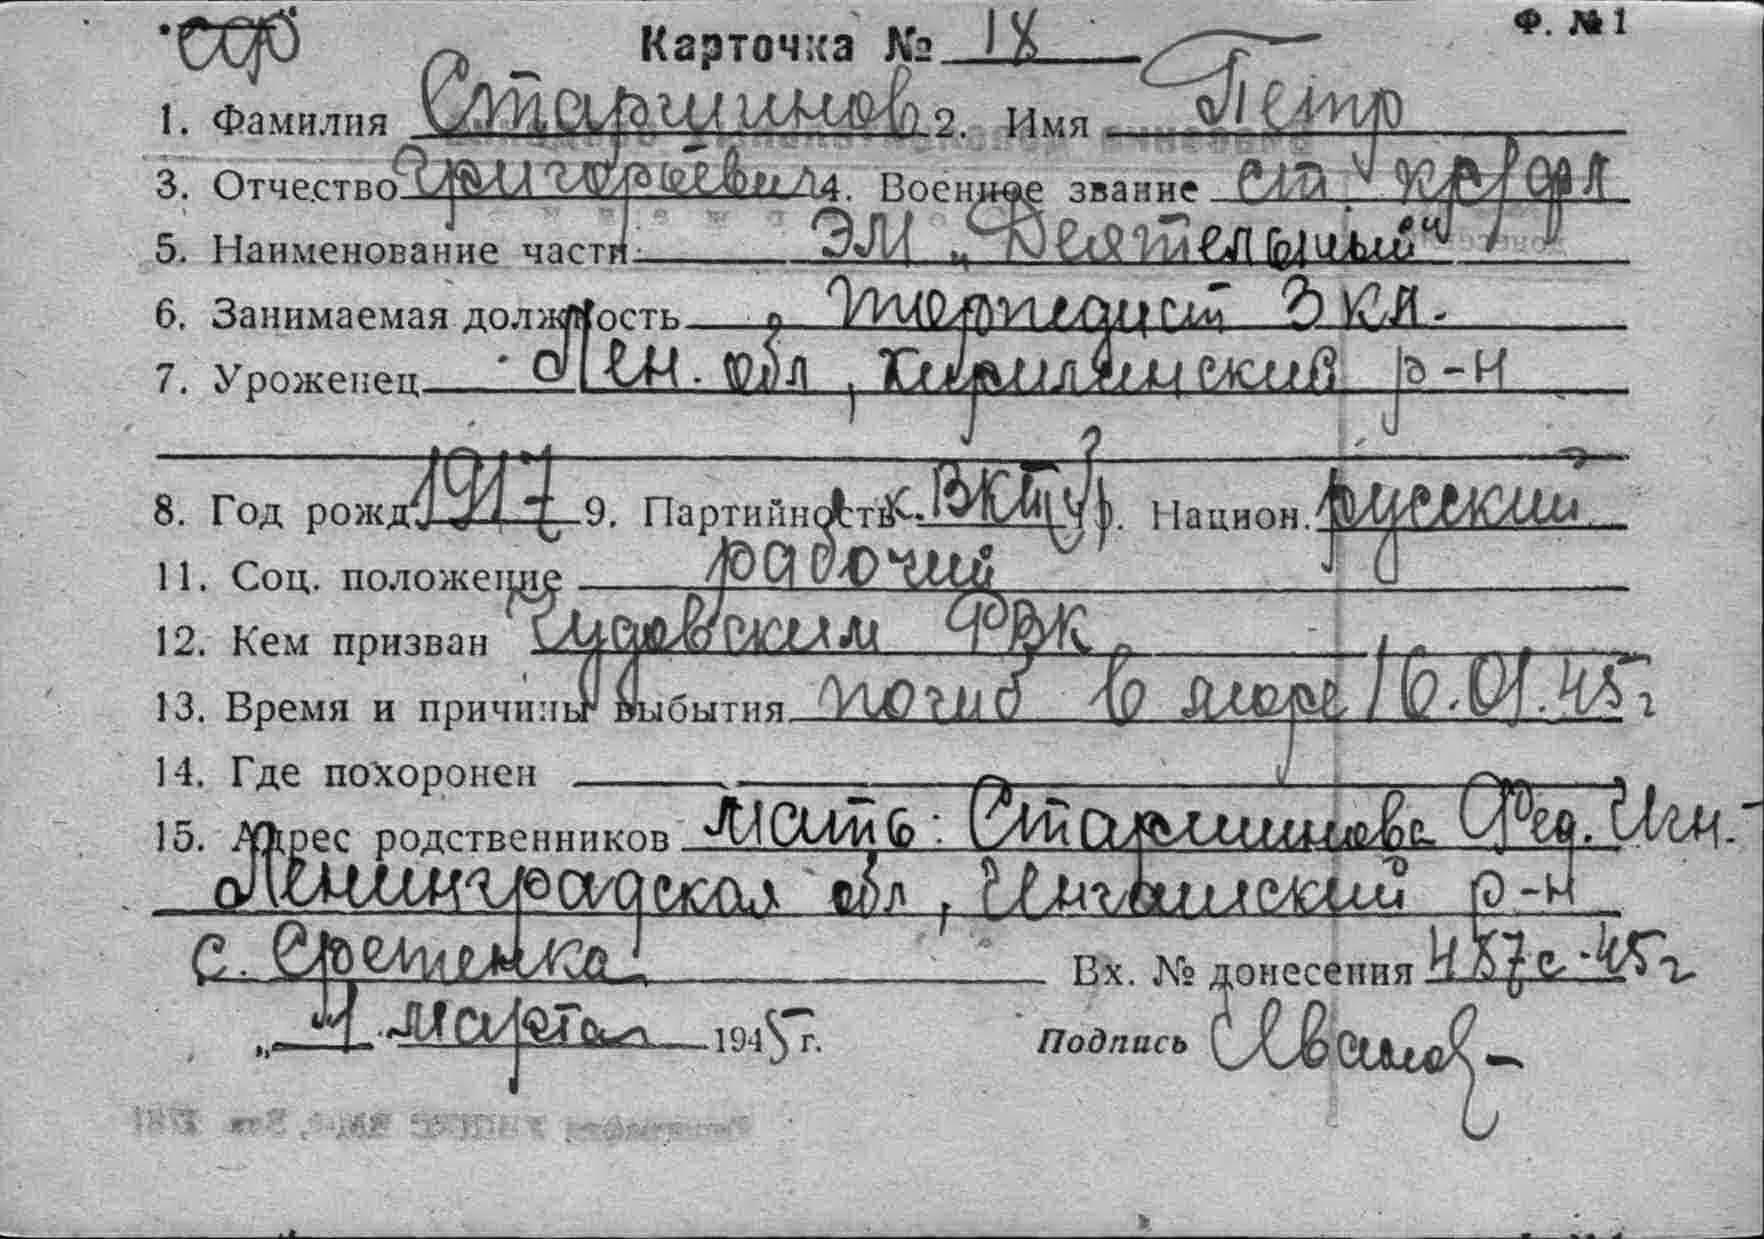 "СФ"
Карточка № 18
Ф. № 1
1. Фамилия Старшинов 2. Имя Петр
3. Отчество Григорьевич 4. Военное звание ст. кр/фл
5. Наименование части ЭМ „Деятельный"
6. Занимаемая должность торпедист 3 кл.
7. Уроженец Лен. обл, Киришинский р-н
8. Год рожд. 1917 9. Партийность к. ВКП(б) . Национ. русский
11. Соц. положение рабочий
12. Кем призван Чудовским РВК
13. Время и причины выбытия погиб в море 16.01.45г
14. Где похоронен
15. Адрес родственников мать: Старшинова Фед. Игн. -
Ленинградская обл, Ингашский р-н
с. Сретенка Вх. № донесения 487с-45г
марта 1945 г. Подпись